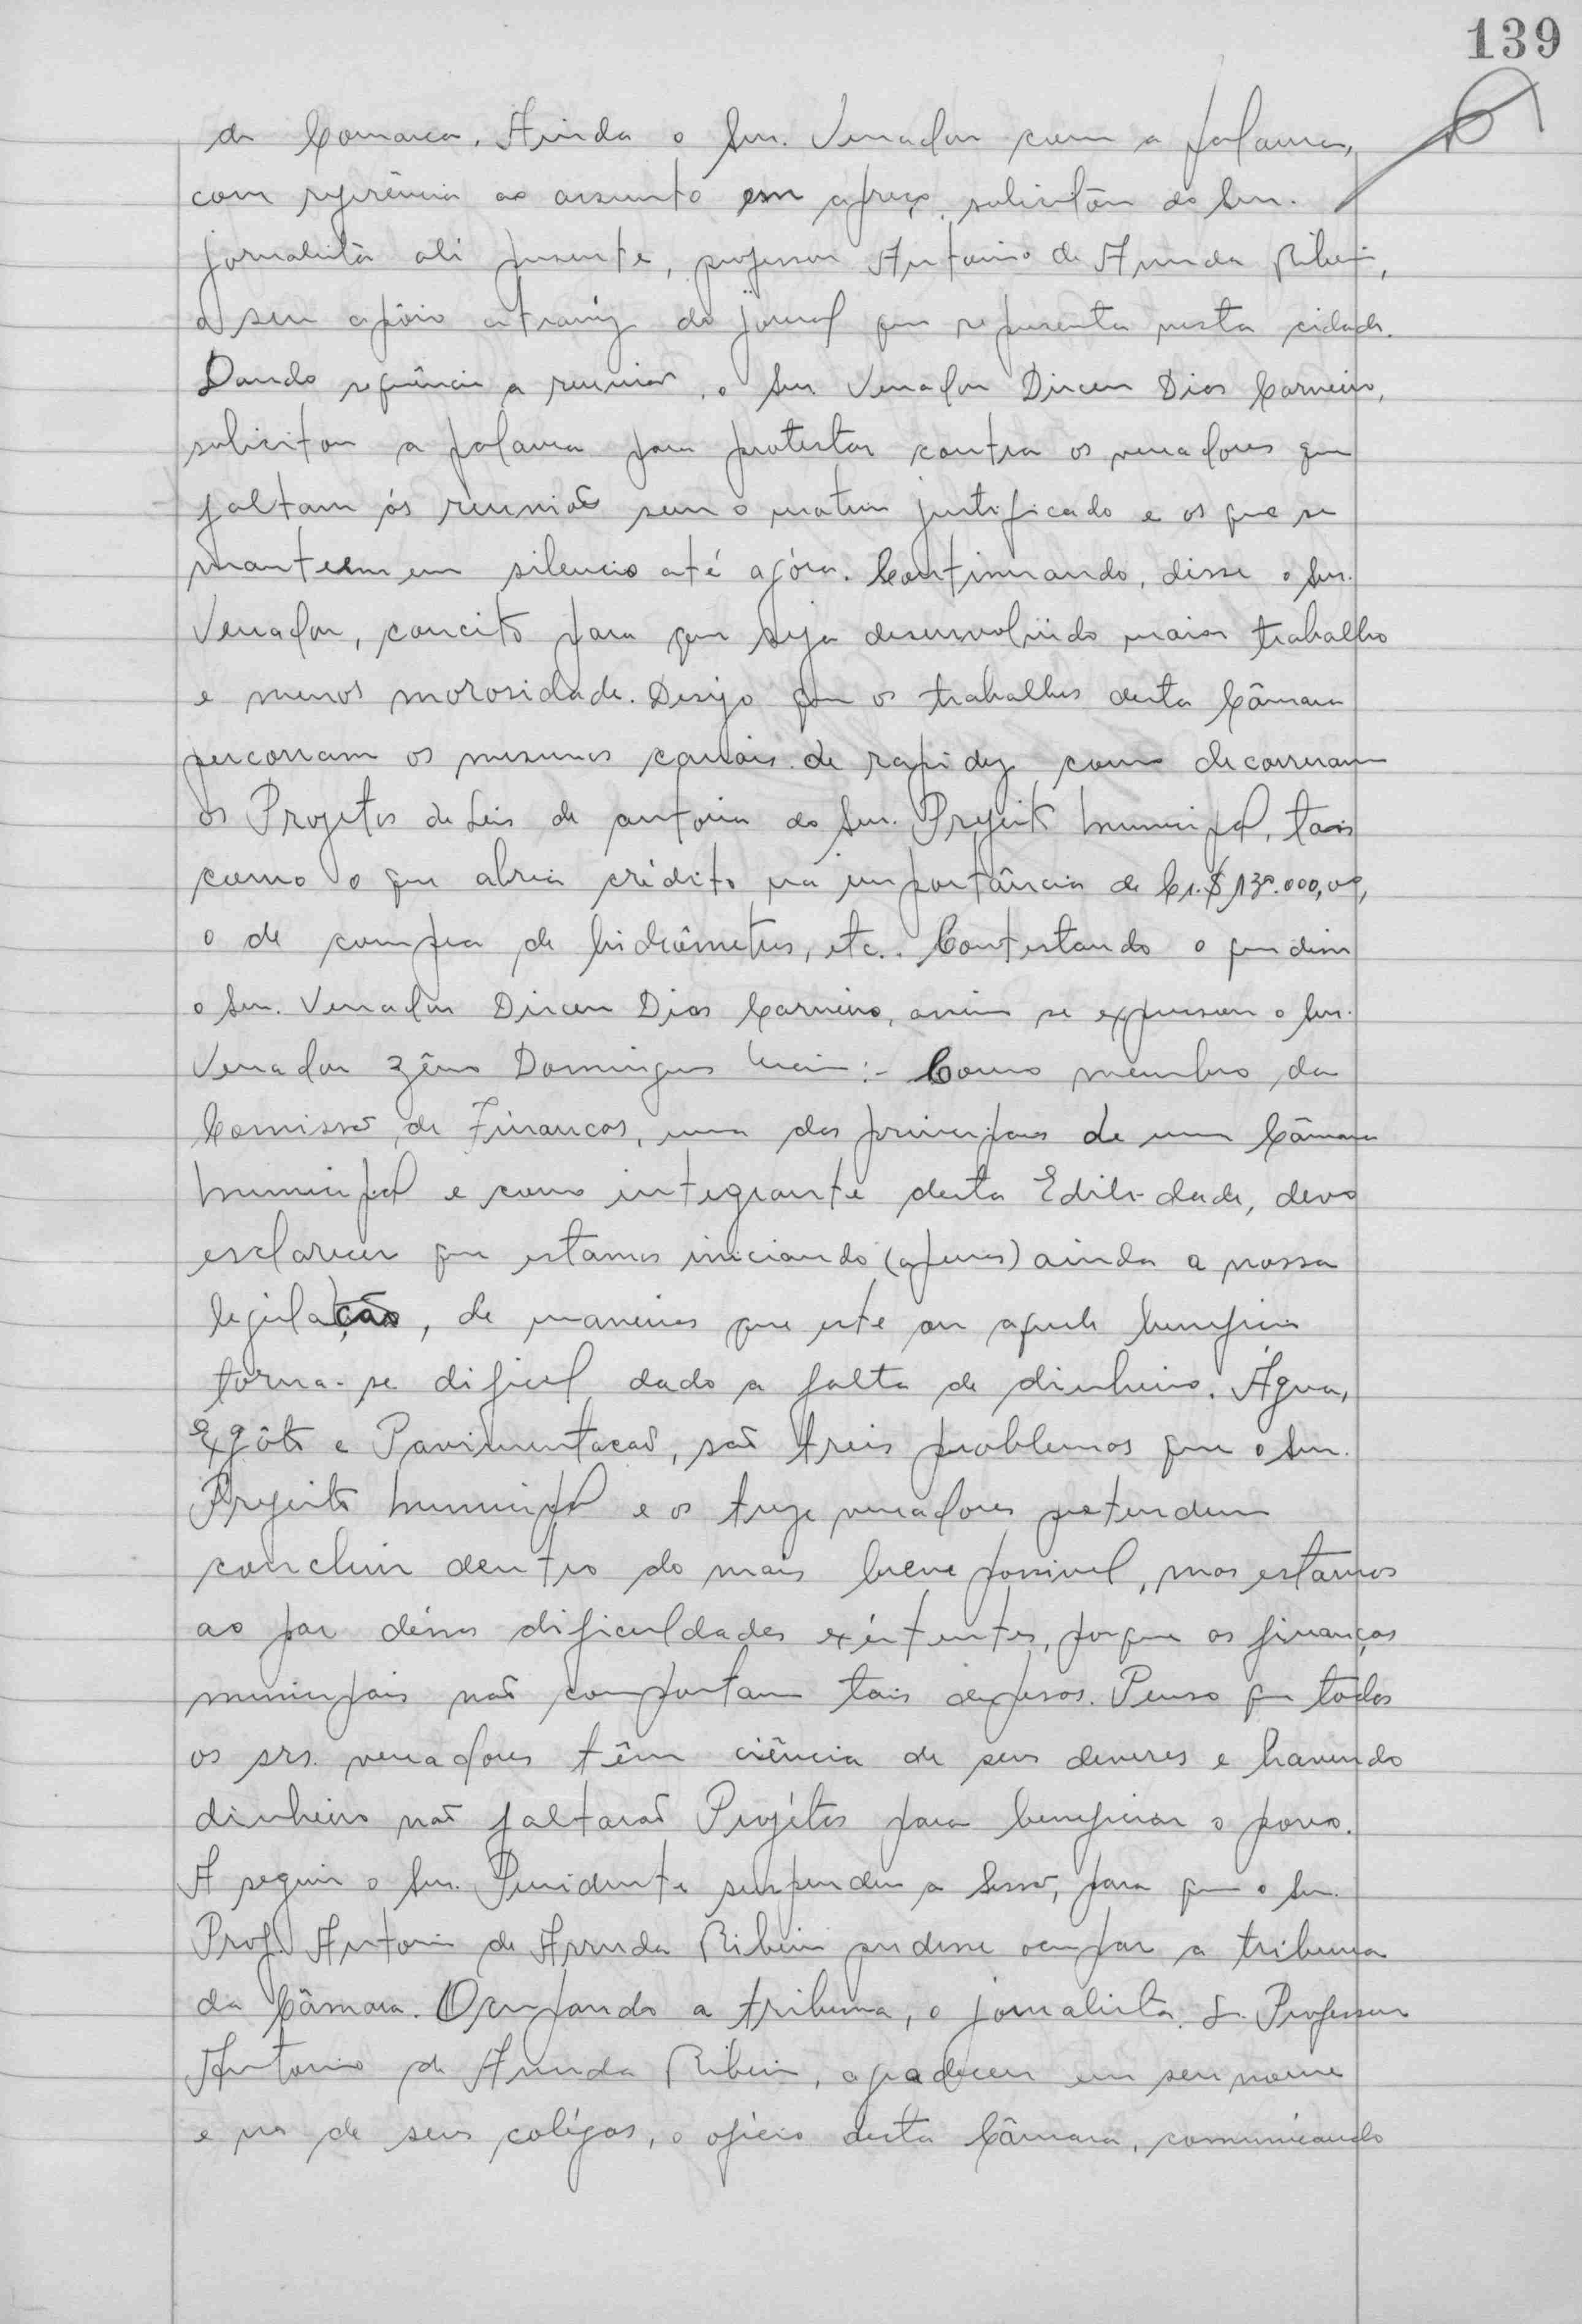 139
da Comarca. Ainda o Snr. Vereador com a palavra,
com referência ao assunto em aprêço, solicitou do Snr.
jornalista ali presente, professor Antonio de Arruda Ribeiro,
o seu apôio através do jornal que representa nesta cidade.
Dando sequência a reunião, o Snr Vereador Dirceu Dias Carneiro,
solicitou a palavra para protestar contra os vereadores que
faltam ás reuniões sem o motivo justificado e os que se
mantem em silencio até agóra. Continuando, disse o Snr.
Vereador, concito para que seja desenvolvido maior trabalho
e menos morosidade. Desejo que os trabalhos desta Câmara
percorram os mesmos canais de rapidez como decorreram
os Projetos de Leis de autoria do Snr. Prefeito Municipal, tais
como o que abria crédito na importância de Cr.$ 130.000,00,
o de compra de hidrômetros, etc.. Contestando o que disse
o Snr. Vereador Dirceu Dias Carneiro, assim se expressou o Snr.
Vereador Zêno Domingues Maia:- Como membro da
Comissão de Financas, uma das principais de uma Câmara
Municipal e como integrante desta Edilidade, devo
esclarecer que estamos iniciando (apenas) ainda a nossa
legislação, de maneira que este ou aquele beneficio
torna-se dificil dado a falta de dinheiro. Água,
Exgôto e Pavimentacão, são treis problemas que o Snr.
Prefeito Municipal e os treze vereadores pretendem
concluir dentro do mais breve possivel, mas estamos
ao par déssas dificuldades existentes, porque as finanças
municipais não comportam tais despesas. Penso que todos
os srs. vereadores têm ciência de seus deveres e havendo
dinheiro não faltarão Projétos para beneficiar o povo.
A seguir o Snr. Presidente suspendeu a Sessão, para que o Snr.
Prof. Antonio de Arruda Ribeiro pudesse ocupar a tribuna
da Câmara. Ocupando a tribuna, o jornalista Sr. Professor
Antonio de Arruda Ribeiro, agradeceu em seu nome
e no de seus colégas, o oficio desta Câmara, comunicando